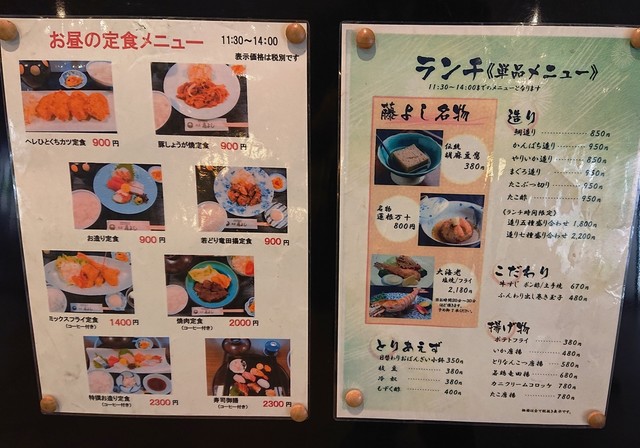 お昼の定食メニュー
11:30～14:00
表示価格は税別です
ヘレひとくちカツ定食 900円
豚しょうが焼定食 900円
お造り定食 900円
若どり竜田揚定食 900円
ミックスフライ定食 1400円
(コーヒー付き)
焼肉定食 2000円
(コーヒー付き)
特撰お造り定食 2300円
(コーヒー付き)
寿司御膳 2300円
(コーヒー付き)
ランチ《単品メニュー》
11:30～14:00までのメニューとなります
藤よし名物
伝統
胡麻豆腐
380円
名物
蓮根万十
800円
大海老
塩焼/フライ
2,180円
とりあえず
日替わりおばんざい小鉢 350円
枝豆 380円
冷奴 380円
もずく酢 400円
造り
鯛造り 850円
かんぱち造り 950円
やりいか造り 850円
まぐろ造り 950円
たこぶつ切り 950円
たこ酢 950円
《ランチ時間限定》
造り五種盛り合わせ 1,800円
造り七種盛り合わせ 2,200円
こだわり
牛すじ ポン酢/土手焼 670円
ふんわり出し巻き玉子 480円
揚げ物
ポテトフライ 380円
いか唐揚 480円
とりなんこつ唐揚 580円
若鶏竜田揚 680円
カニクリームコロッケ 780円
たこ唐揚 780円